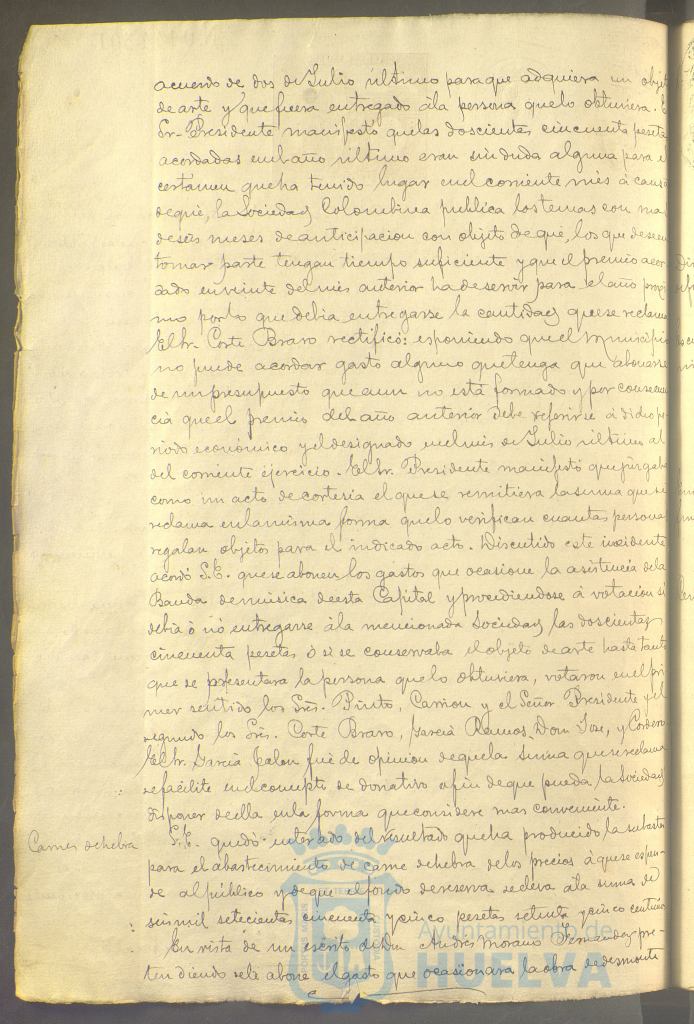 acuerdo de dos de Julio último para que adquiera un objeto
de arte y que fuera entregado á la persona que lo obtuviera. El
Sr. Presidente manifestó que las doscientas cincuenta pesetas
acordadas en el año último eran sin duda alguna para el
certámen que ha tenido lugar en el corriente mes á causa
de que, la Sociedad Colombina publica los temas con mas
de seis meses de anticipacion con objeto de que, los que deseen
tomar parte tengan tiempo suficiente y que el premio acor-
dado en veinte del mes anterior ha de servir para el año proxi-
mo por lo que debia entregarse la cantidad que se reclama
El Sr. Corte Bravo rectificó: esponiendo que el Municipio
no puede acordar gasto alguno que tenga que abonarse
de un presupuesto que aun no está formado y por consecuen-
cia que el premio del año anterior debe referirse á dicho pe-
riodo económico y el designado en el mes de Julio último al
del corriente ejercicio. El Sr. Presidente manifestó que juzgaba
como un acto de cortesia el que se remitiera la suma que se
reclama en la misma forma que lo verifican cuantas personas
regalan objetos para el indicado acto. Discutido este incidente
acordó S.E. que se abonen los gastos que ocasione la asistencia de la
Banda de música de esta Capital y procediendose á votacion si
debia ó nó entregarse á la mencionada Sociedad las doscientas
cincuenta pesetas ó si se conservaba el objeto de arte hasta tanto
que se presentara la persona que lo obtuviera, votaron en el pri-
mer sentido los Sres. Pinto, Carrion y el Señor Presidente y el
segundo los Sres. Corte Bravo, Garcia Ramos Don Jose, y Cordero
El Sr. Garcia Calon fué de opinion de que la suma que se reclama
se facilite en el concepto de donativo a fin de que pueda la Sociedad
disponer de ella en la forma que considere mas conveniente.
Carnes de hebra S.E. quedó enterado del resultado que ha producido la subasta
para el abastecimiento de carne de hebra de los precios á que se espen-
de al público y de que el fondo de reserva se eleva á la suma de
seis mil setecientas cincuenta y cinco pesetas setenta y cinco centimos
En vista de un escrito de Dn. Andrés Morano Fernandez pre-
tendiendo se le abone el gasto que ocasionara la obra de desmonte
Ayuntamiento de
HUELVA